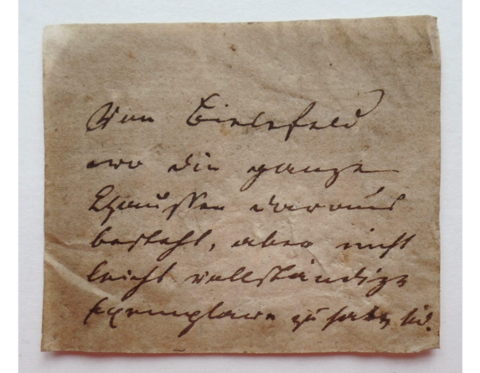 Von Bielefeld
wo die ganze
Chaussee daraus
besteht, aber nicht
leicht vollständige
Exemplare zu haben sind.